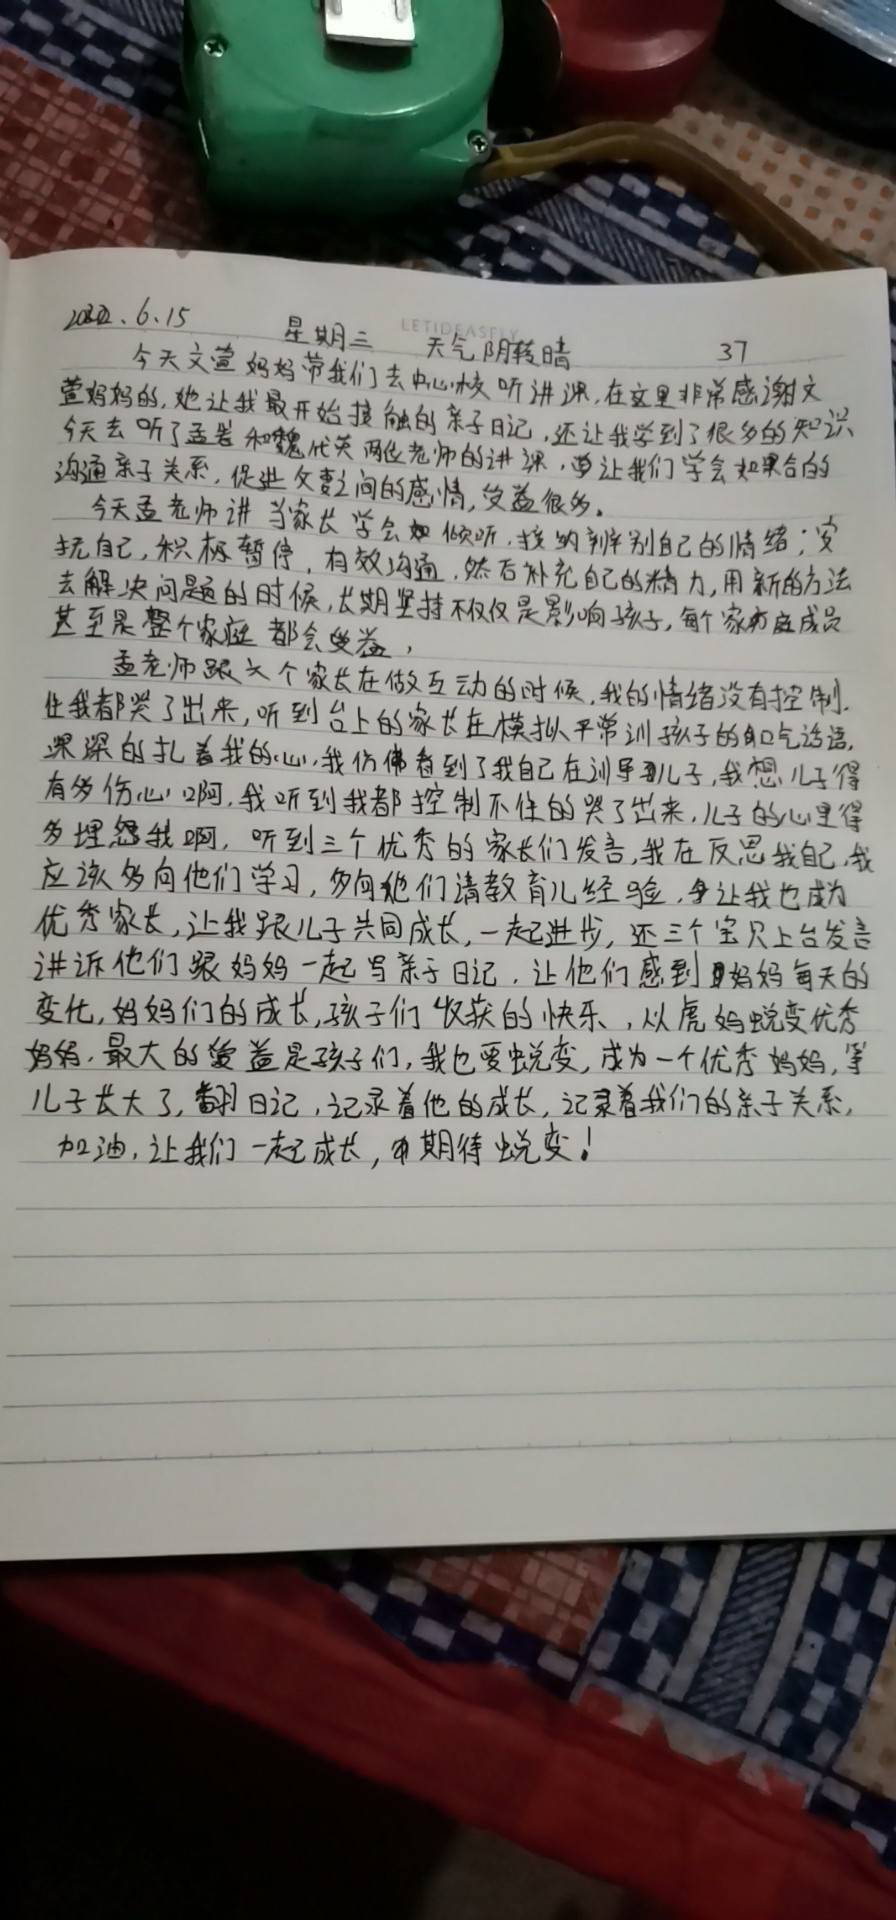 LETIDEASFLY
2022.6.15 星期三 天气阴转晴 37
今天文萱妈妈带我们去中心校听讲课,在这里非常感谢文
萱妈妈的,她让我最开始接触的亲子日记,还让我学到了很多的知识
今天去听了孟 和魏代英两位老师的讲课,让我们学会如果合的
沟通亲子关系,促进 之间的感情,受益很多。
今天孟老师讲当家长学会倾听,接纳辨别自己的情绪;安
抚自己,积极暂停,有效沟通,然后补充自己的精力,用新的方法
去解决问题的时候,长期坚持不仅仅是影响孩子,每个家庭成员
甚至是整个家庭都会受益,
孟老师跟六个家长在做互动的时候,我的情绪没有控制
住我都哭了出来,听到台上的家长在模拟平常训孩子的口气话语,
深深的扎着我的心,我仿佛看到了我自己在训导儿子,我想儿子得
有多伤心啊,我听到我都控制不住的哭了出来,儿子的心里得
多埋怨我啊,听到三个优秀的家长们发言,我在反思我自己,我
应该多向他们学习,多向他们请教育儿经验,争让我也成为
优秀家长,让我跟儿子共同成长,一起进步,还三个宝贝上台发言
讲诉他们跟妈妈一起写亲子日记,让他们感到妈妈每天的
变化,妈妈们的成长,孩子们收获的快乐,从虎妈蜕变优秀
妈妈,最大的受益是孩子们,我也要蜕变,成为一个优秀妈妈,等
儿子长大了,翻日记,记录着他的成长,记录着我们的亲子关系,
加油,让我们一起成长,期待蜕变!